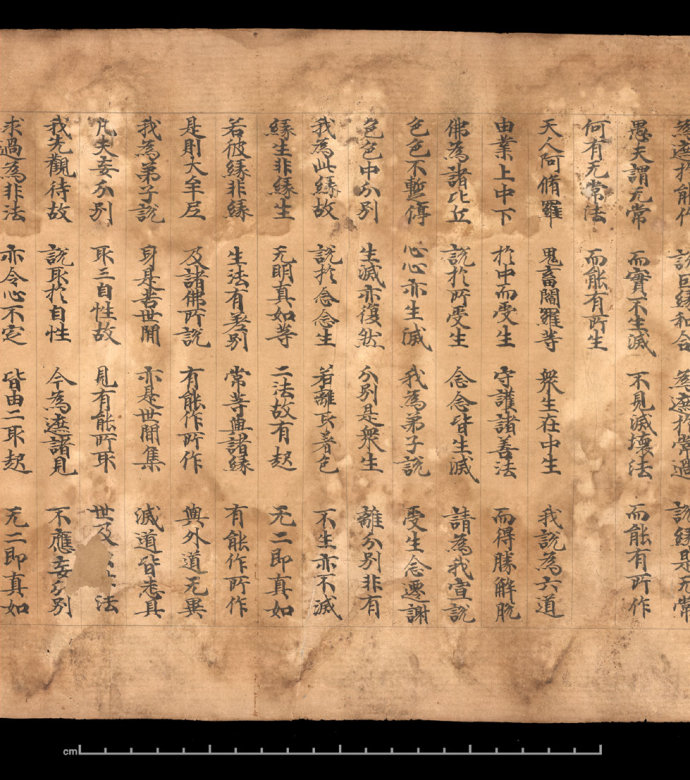 為遮於能作 說因緣和合 為遮於常過 說緣是无常
愚夫謂无常 而實不生滅 不見滅壞法 而能有所作
何有无常法 而能有所生
天人阿脩羅 鬼畜閻羅等 衆生在中生 我說為六道
由業上中下 於中而受生 守護諸善法 而得勝解脫
佛為諸比丘 說於所受生 念念皆生滅 請為我宣說
色色不暫停 心心亦生滅 我為弟子說 受生念遷謝
色色中分別 生滅亦復然 分別是衆生 離分別非有
我為此緣故 說於念念生 若離取著色 不生亦不滅
緣生非緣生 无明真如等 二法故有起 无二即真如
若彼緣非緣 生法有差別 常等與諸緣 有能作所作
是則大牟尼 及諸佛所說 有能作所作 與外道无異
我為弟子說 身是苦世間 亦是世間集 滅道皆悉具
凡夫妄分別 取三自性故 見有能所取 世及法
我先觀待故 說取於自性 今為遮諸見 不應妄分別
求過為非法 亦令心不定 皆由二取起 无二即真如
cm